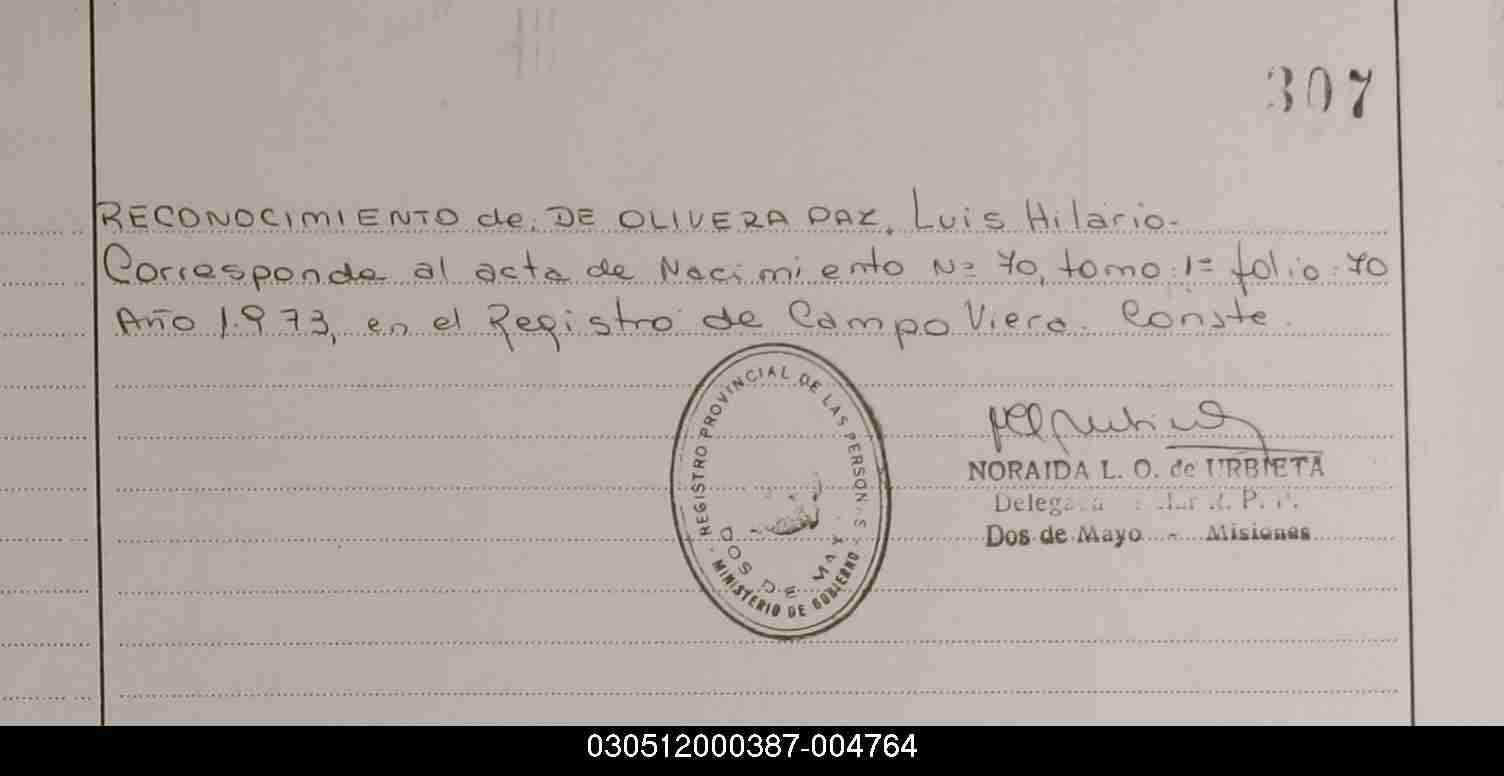 307
RECONOCIMIENTO de: DE OLIVERA PAZ, Luis Hilario.-
Corresponde al acta de Nacimiento Nº 70, tomo: 1º folio: 70
Año 1.973, en el Registro de Campo Viera. Conste.
REGISTRO PROVINCIAL DE LAS PERSON S
DOS DE MAY
MINISTERIO DE GOBIERNO
NORAIDA L. O. de URBIETA
R. P. P.
Dos de Mayo - Misiones
030512000387-004764